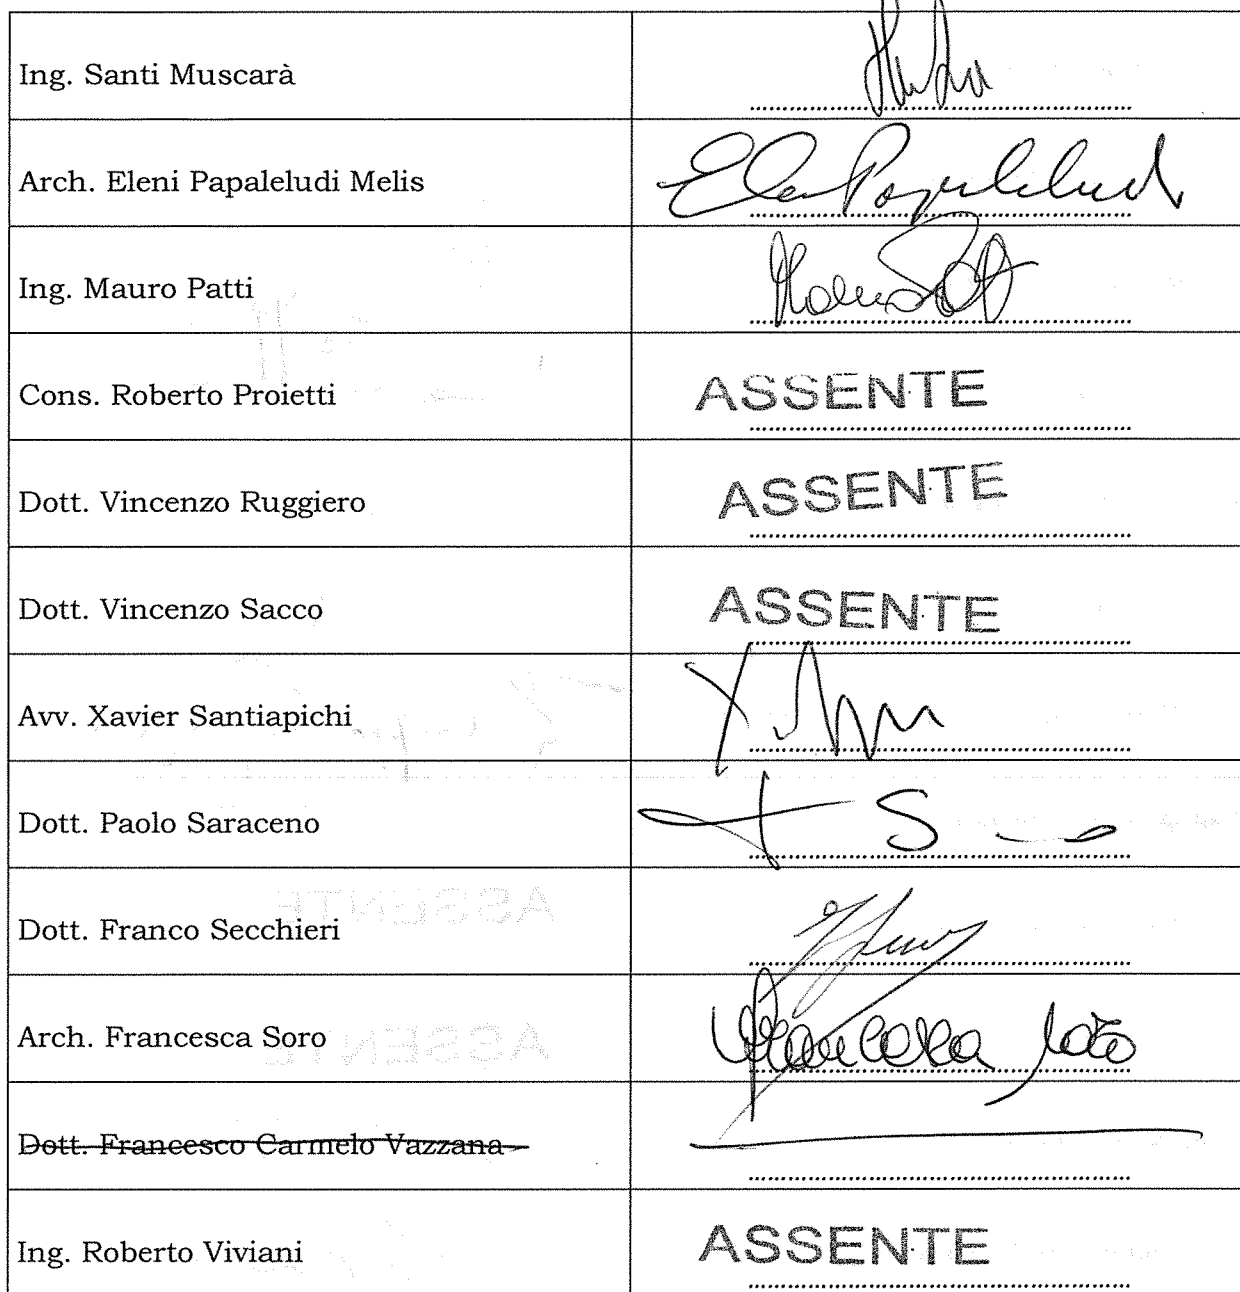 Ing. Santi Muscarà
Arch. Eleni Papaleludi Melis
Ing. Mauro Patti
Cons. Roberto Proietti ASSENTE
Dott. Vincenzo Ruggiero ASSENTE
Dott. Vincenzo Sacco ASSENTE
Avv. Xavier Santiapichi
Dott. Paolo Saraceno
Dott. Franco Secchieri
Arch. Francesca Soro Francesca Soro
Dott. Francesco Carmelo Vazzana
Ing. Roberto Viviani ASSENTE